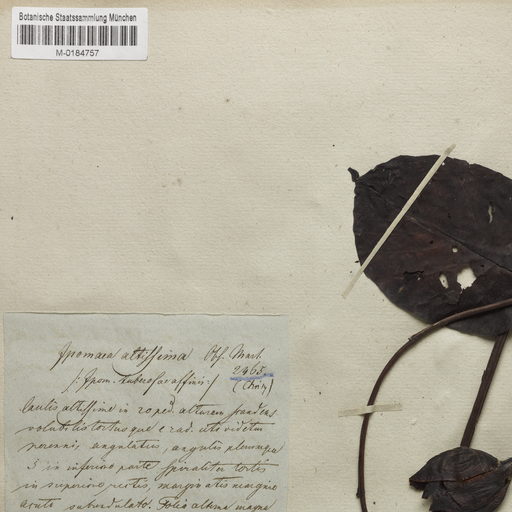 Botanische Staatssammlung München
M-0184757
Ipomaea altissima Obs. Mart.
2465.
/: Ipom. tuberosae affinis :/
Caulis altissime in 20 ped. altarum scandens
volubilis tortusque e rad. uti videtur
perenni, angulatus, angulis plerumque
5 in inferiore parte spiraliter tortis
in superiore rectis, marginatis margine
acuto subundulato. Folia alterna magna